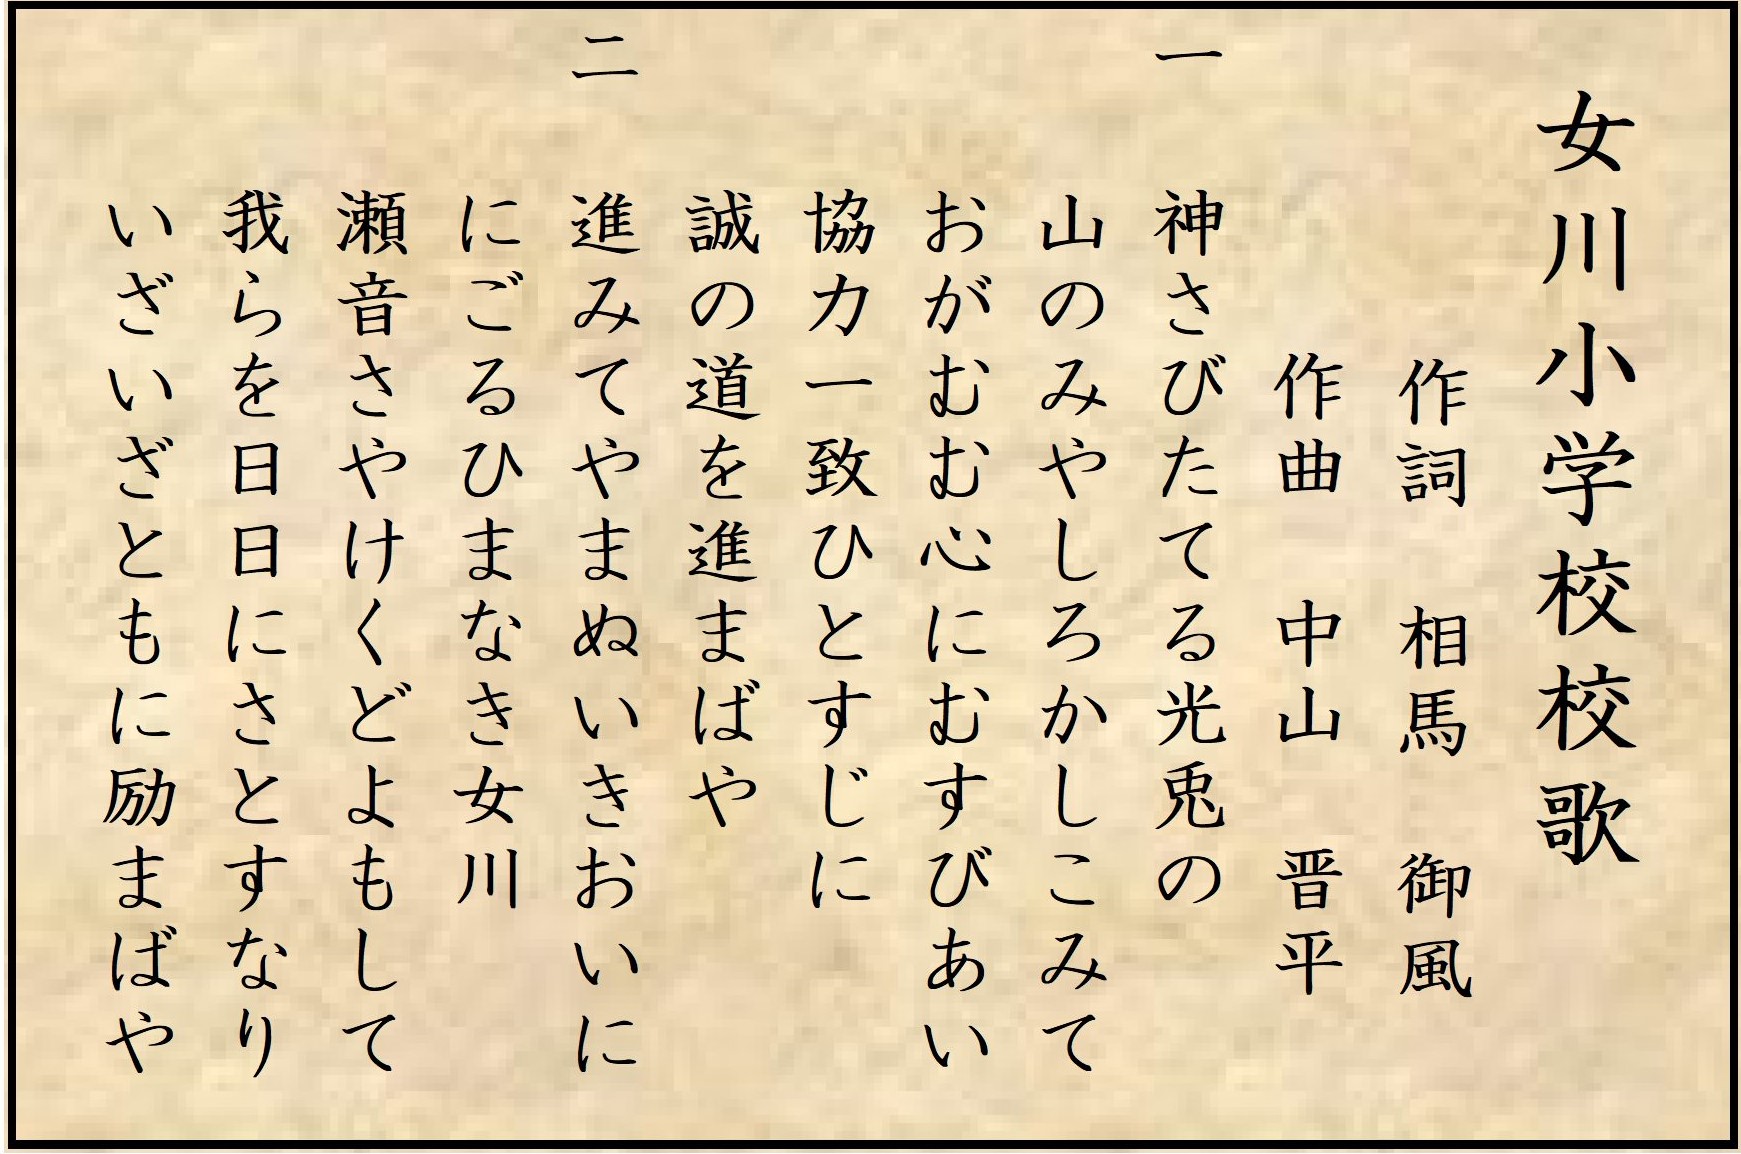 女川小学校校歌
作詞 相馬 御風
作曲 中山 晋平
一
神さびたてる光兎の
山のみやしろかしこみて
おがむむ心にむすびあい
協力一致ひとすじに
誠の道を進まばや
二
進みてやまぬいきおいに
にごるひまなき女川
瀬音さやけくどよもして
我らを日日にさとすなり
いざいざともに励まばや